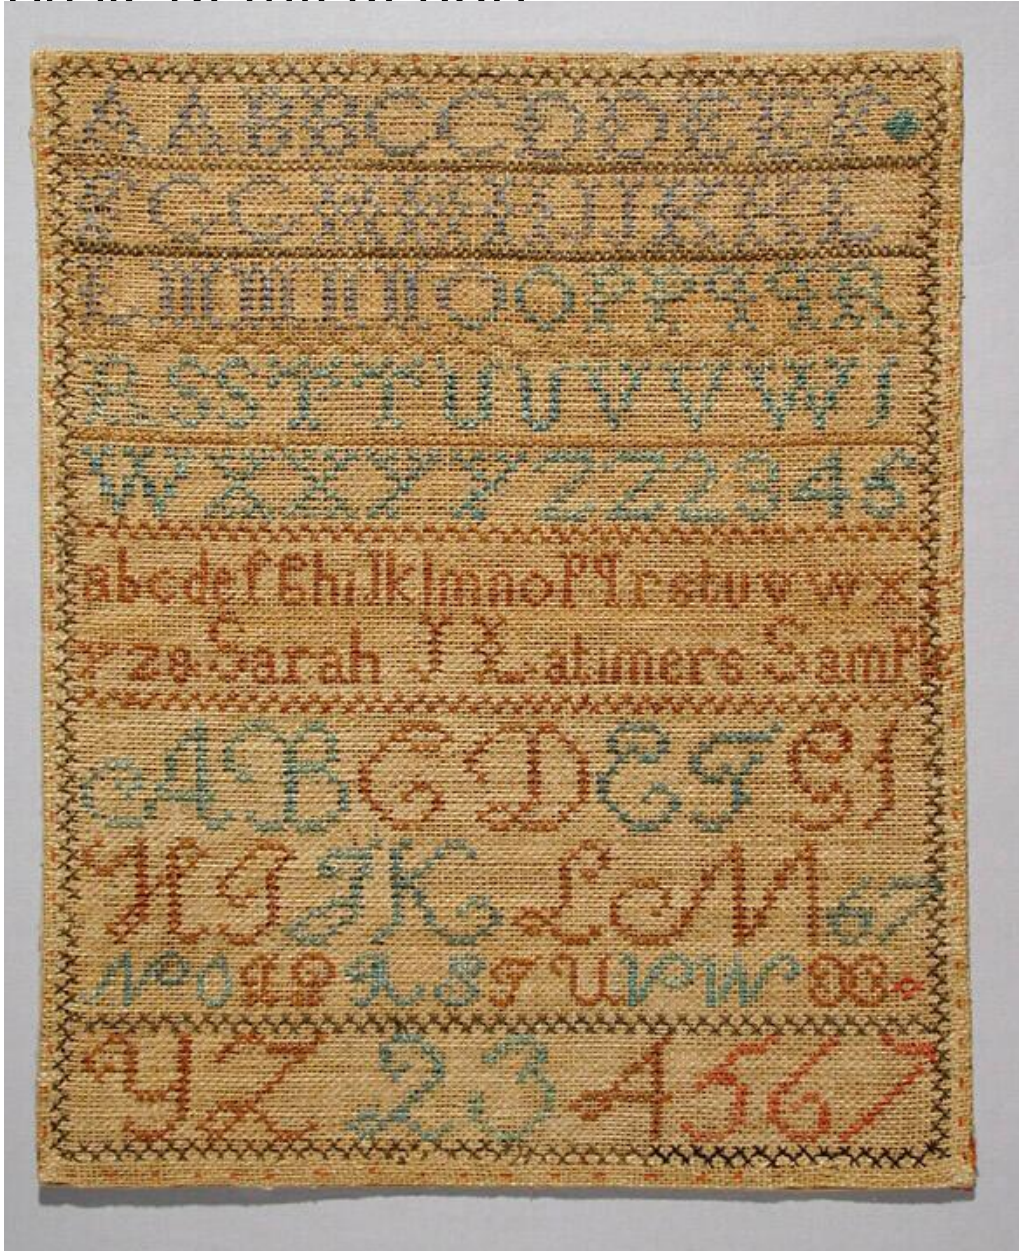 A A B B C C D D E E F
F G G H H I I J J K K L
L M M N N O O P P q q R
R S S T T U U V V W 1
W X X Y Y Z Z 2 3 4 5
a b c d e f g h i J k l m n o p q r s t u v w x
y z & Sarah Y Latimers Sample
A B C D E F G 1
H I J K L M 6 7
N O P Q R S T U V W X
Y Z 2 3 4 5 6 7